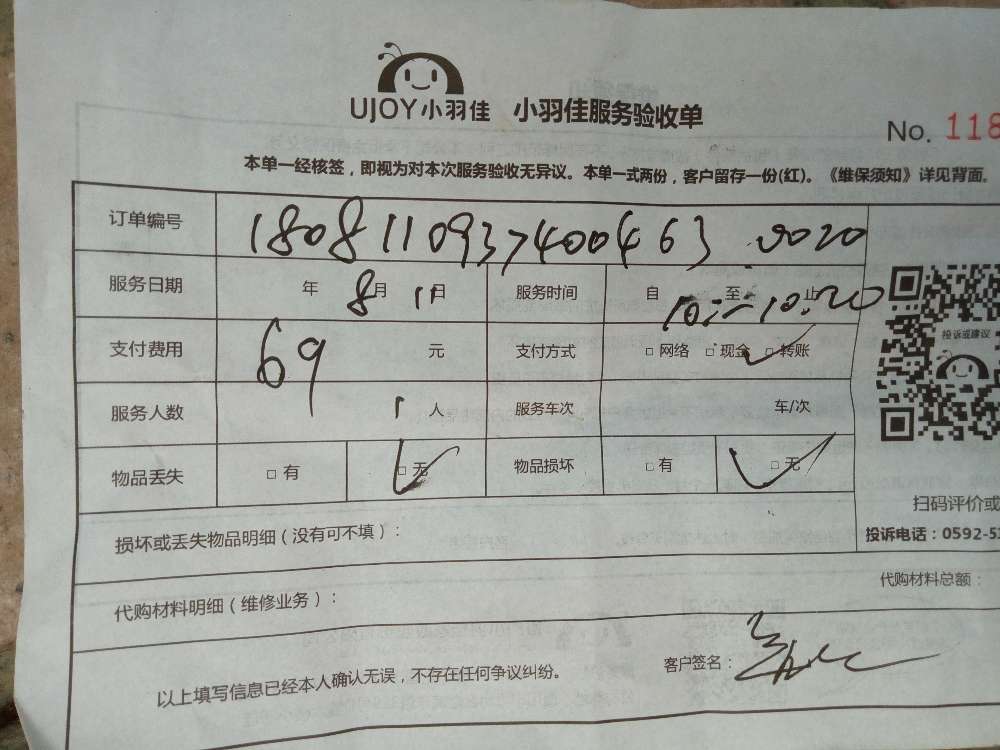 UJOY小羽佳 小羽佳服务验收单
No. 118
本单一经核签，即视为对本次服务验收无异议。本单一式两份，客户留存一份(红)。《维保须知》详见背面。
订单编号 180811093740046 3 0020
服务日期 年 8月 11日 服务时间 自 10:-- 至 10:20 止
支付费用 69 元 支付方式 □网络 □现金 □转账
投诉或建议
服务人数 1 人 服务车次 车/次
物品丢失 □有 □无 物品损坏 □有 □无
扫码评价或
损坏或丢失物品明细（没有可不填）：
投诉电话：0592-5
代购材料总额：
代购材料明细（维修业务）：
客户签名：
以上填写信息已经本人确认无误，不存在任何争议纠纷。